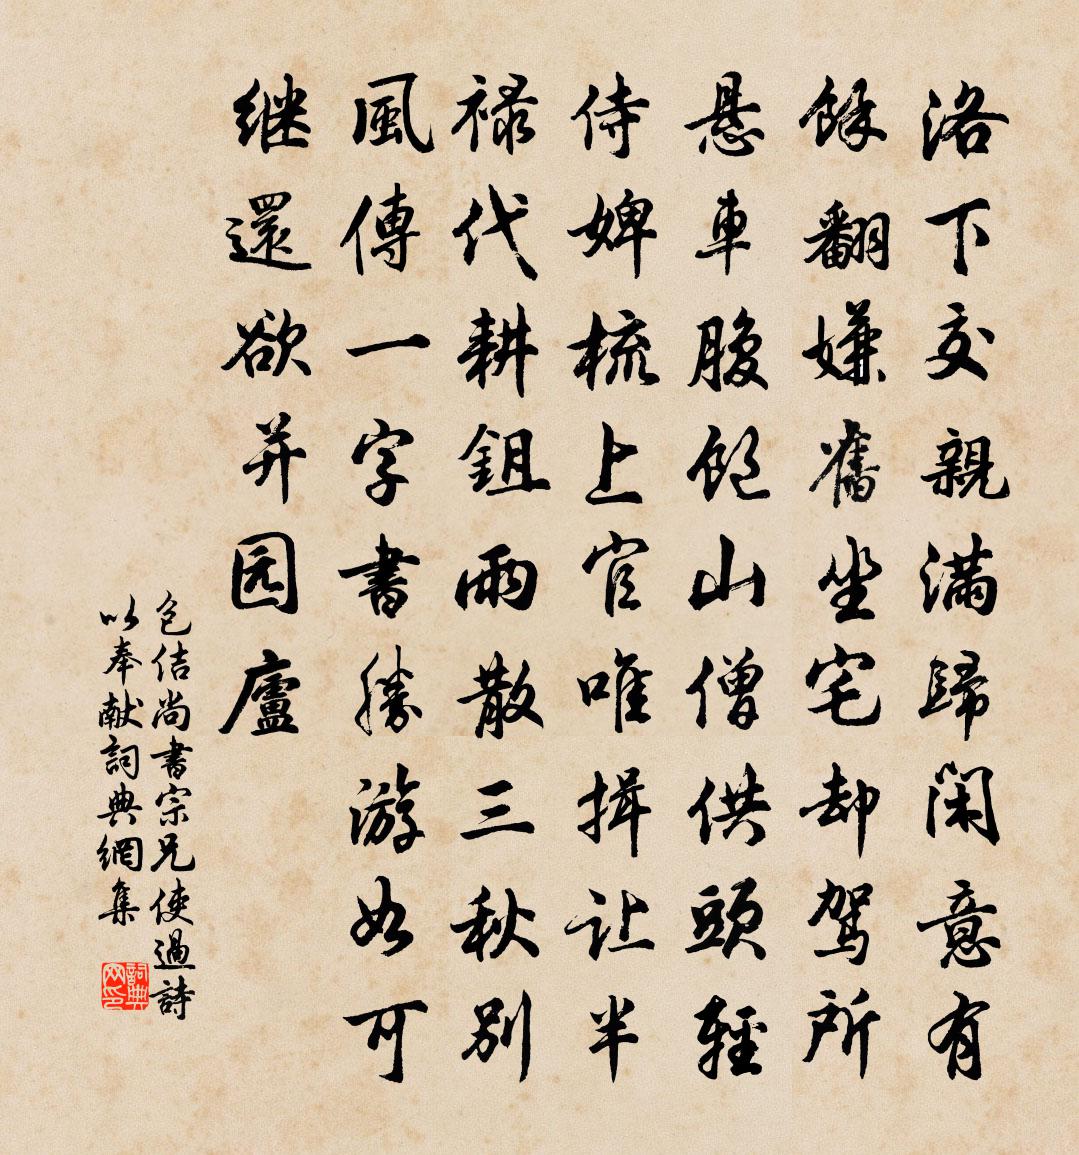 洛下交親满歸閑意有
餘翻嫌舊坐宅却駕所
悬車腹飽山僧供頭輕
侍婢梳上官唯揖让半
禄代耕鉏雨散三秋别
風傳一字書勝游如可
继還欲并园廬
包佶尚書宗兄使過詩
以奉献詞典網集
詞典网印